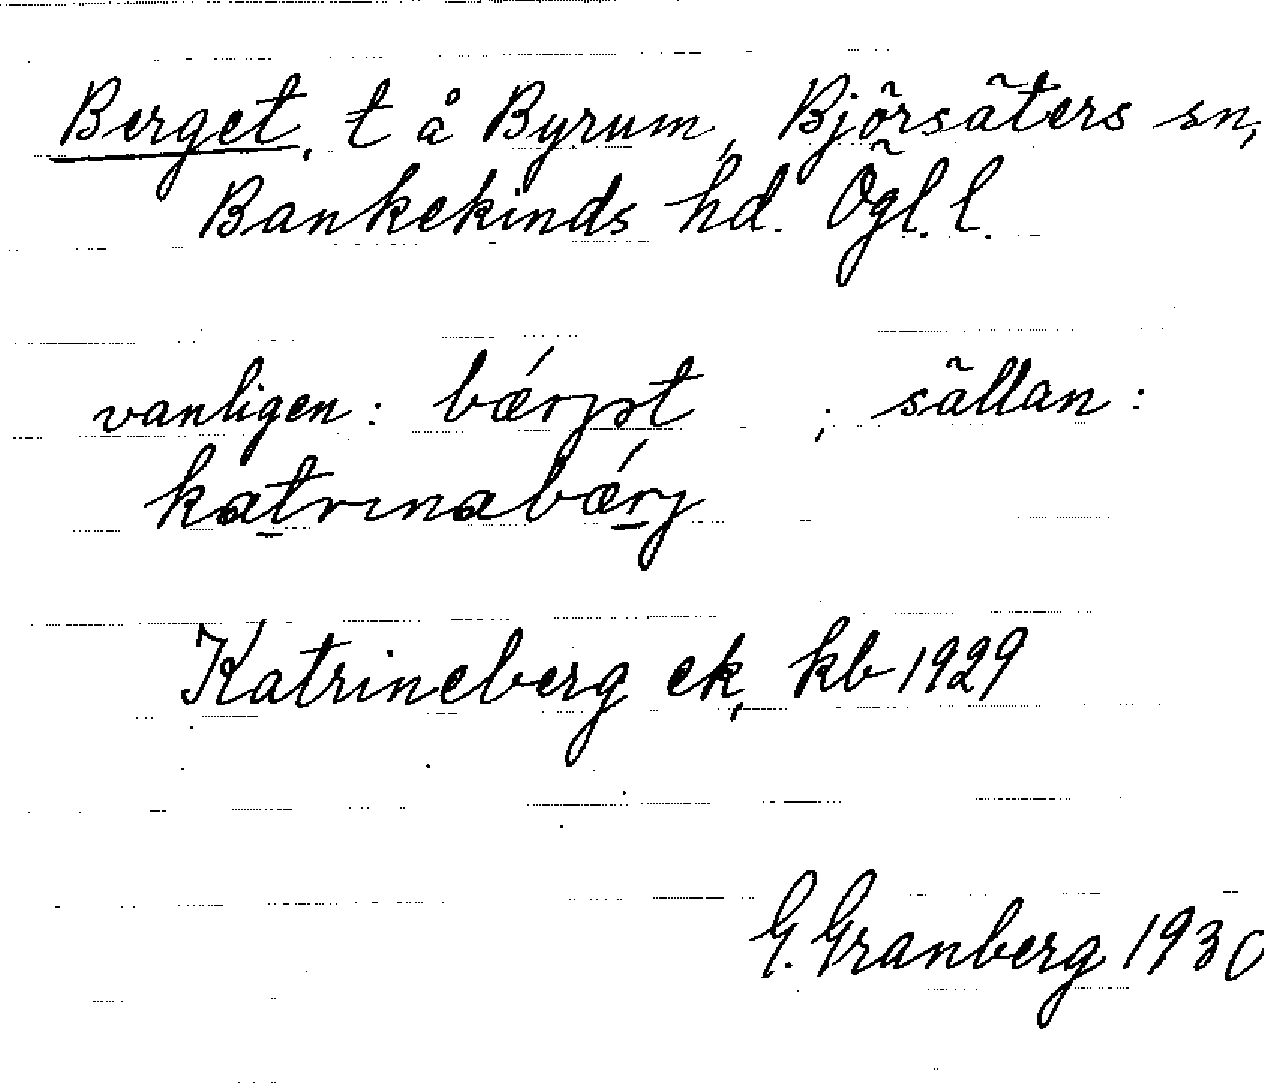 Berget, t å Byrum, Björsäters sn,
Bankekinds hd. Ögl. l.
vanligen: bǽrjət ; sällan:
katrınabǽrj
Katrineberg ek, kb 1929
G. Granberg 1930